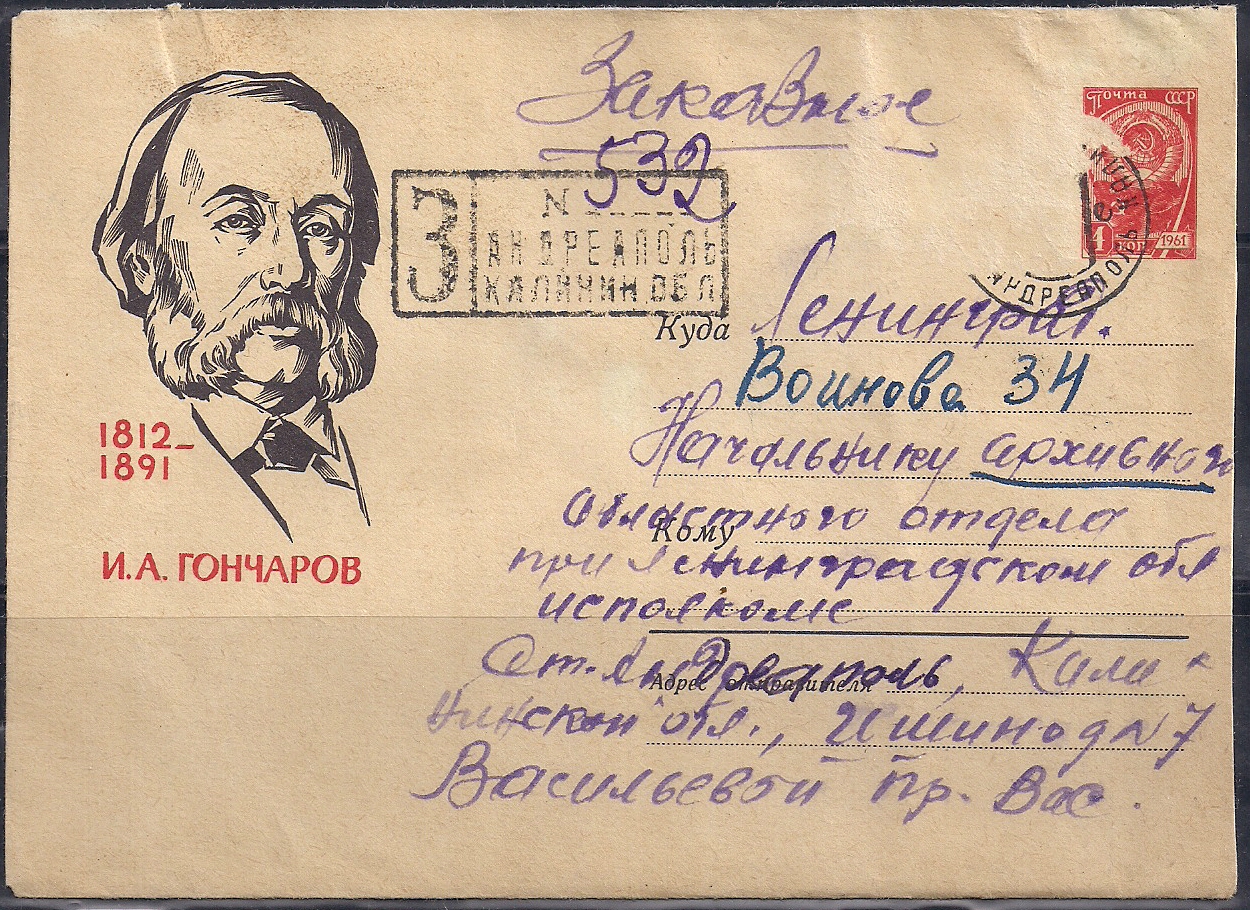 Заказное
532
Почта СССР
4 коп 1961
З
N
АНДРЕАПОЛЬ
КАЛИНИН ОБЛ
АНДРЕАПОЛЬ
Куда Ленинград.
Воинова 34
Начальнику архивного
Областного отдела
Кому
при Ленинградском обл
исполкоме
Ст. Андреаполь, Кали-
Адрес отправителя
нинской обл.,
Васильевой пр. Вас.
1812-
1891
И.А. ГОНЧАРОВ